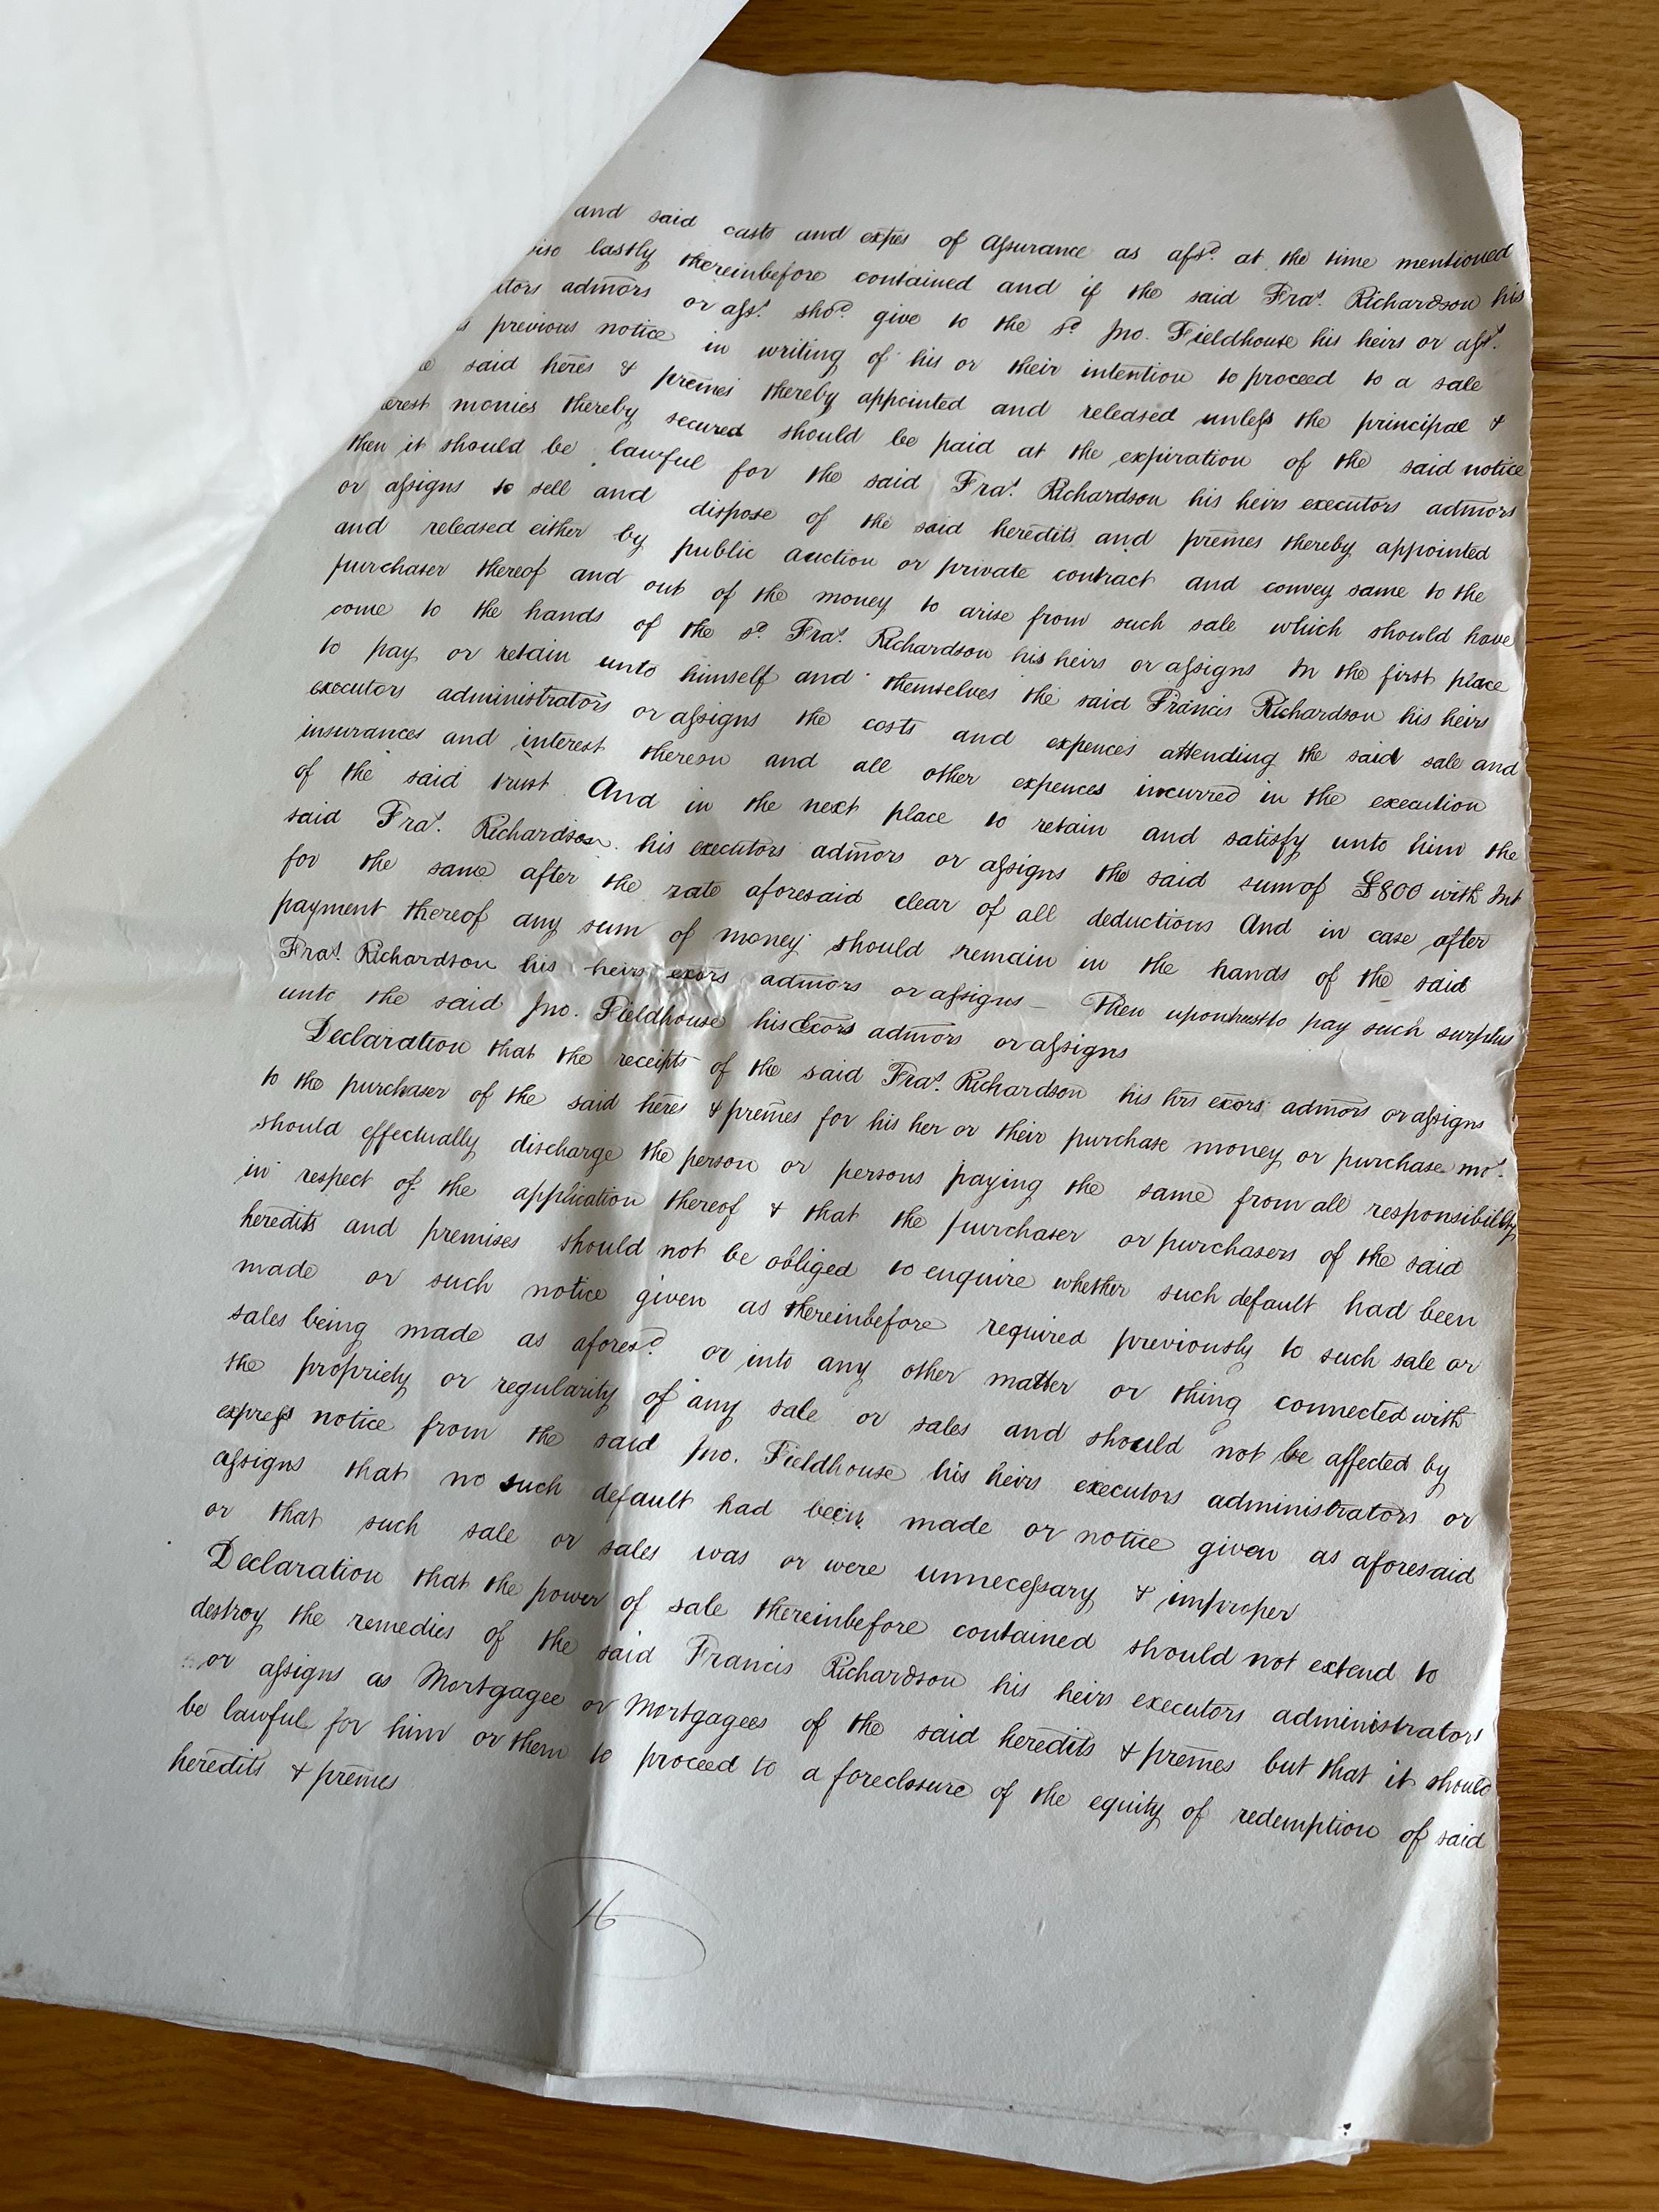 and said costs and expēs of Assurance as afsd. at the time mentioned
iso lastly thereinbefore contained and if the said Fras. Richardson his
utors admōrs or asss. shod. give to the sd. Jno. Fieldhouse his heirs or asss.
s previous notice in writing of his or their intention to proceed to a sale
e said herēs & premēs thereby appointed and released unless the principal &
erest monies thereby secured should be paid at the expiration of the said notice
then it should be lawful for the said Fras. Richardson his heirs executors admōrs
or assigns to sell and dispose of the said heredīts and premēs thereby appointed
and released either by public auction or private contract and convey same to the
purchaser thereof and out of the money to arise from such sale which should have
come to the hands of the sd. Fras. Richardson his heirs or assigns In the first place
to pay or retain unto himself and themselves the said Francis Richardson his heirs
executors administrators or assigns the costs and expences attending the said sale and
insurances and interest thereon and all other expences incurred in the execution
of the said trust And in the next place to retain and satisfy unto him the
said Fras. Richardson his executors admōrs or assigns the said sum of £800 with Int
for the same after the rate aforesaid clear of all deductions And in case after
payment thereof any sum of money should remain in the hands of the said
Fras. Richardson his heirs exōrs admōrs or assigns – Then upon trust to pay such surplus
unto the said Jno. Fieldhouse his Exōrs admōrs or assigns
Declaration that the receipts of the said Fras. Richardson his hrs exōrs admōrs or assigns
to the purchaser of the said herēs & premēs for his her or their purchase money or purchase mos.
should effectually discharge the person or persons paying the same from all responsibility
in respect of the application thereof & that the purchaser or purchasers of the said
heredīts and premises should not be obliged to enquire whether such default had been
made or such notice given as thereinbefore required previously to such sale or
sales being made as aforesd. or into any other matter or thing connected with
the propriety or regularity of any sale or sales and should not be affected by
express notice from the said Jno. Fieldhouse his heirs executors administrators or
assigns that no such default had been made or notice given as aforesaid
or that such sale or sales was or were unnecessary & improper
Declaration that the power of sale thereinbefore contained should not extend to
destroy the remedies of the said Francis Richardson his heirs executors administrators
or assigns as Mortgagee or Mortgagees of the said heredīts & premēs but that it should
be lawful for him or them to proceed to a foreclosure of the equity of redemption of said
heredīts & premēs
16